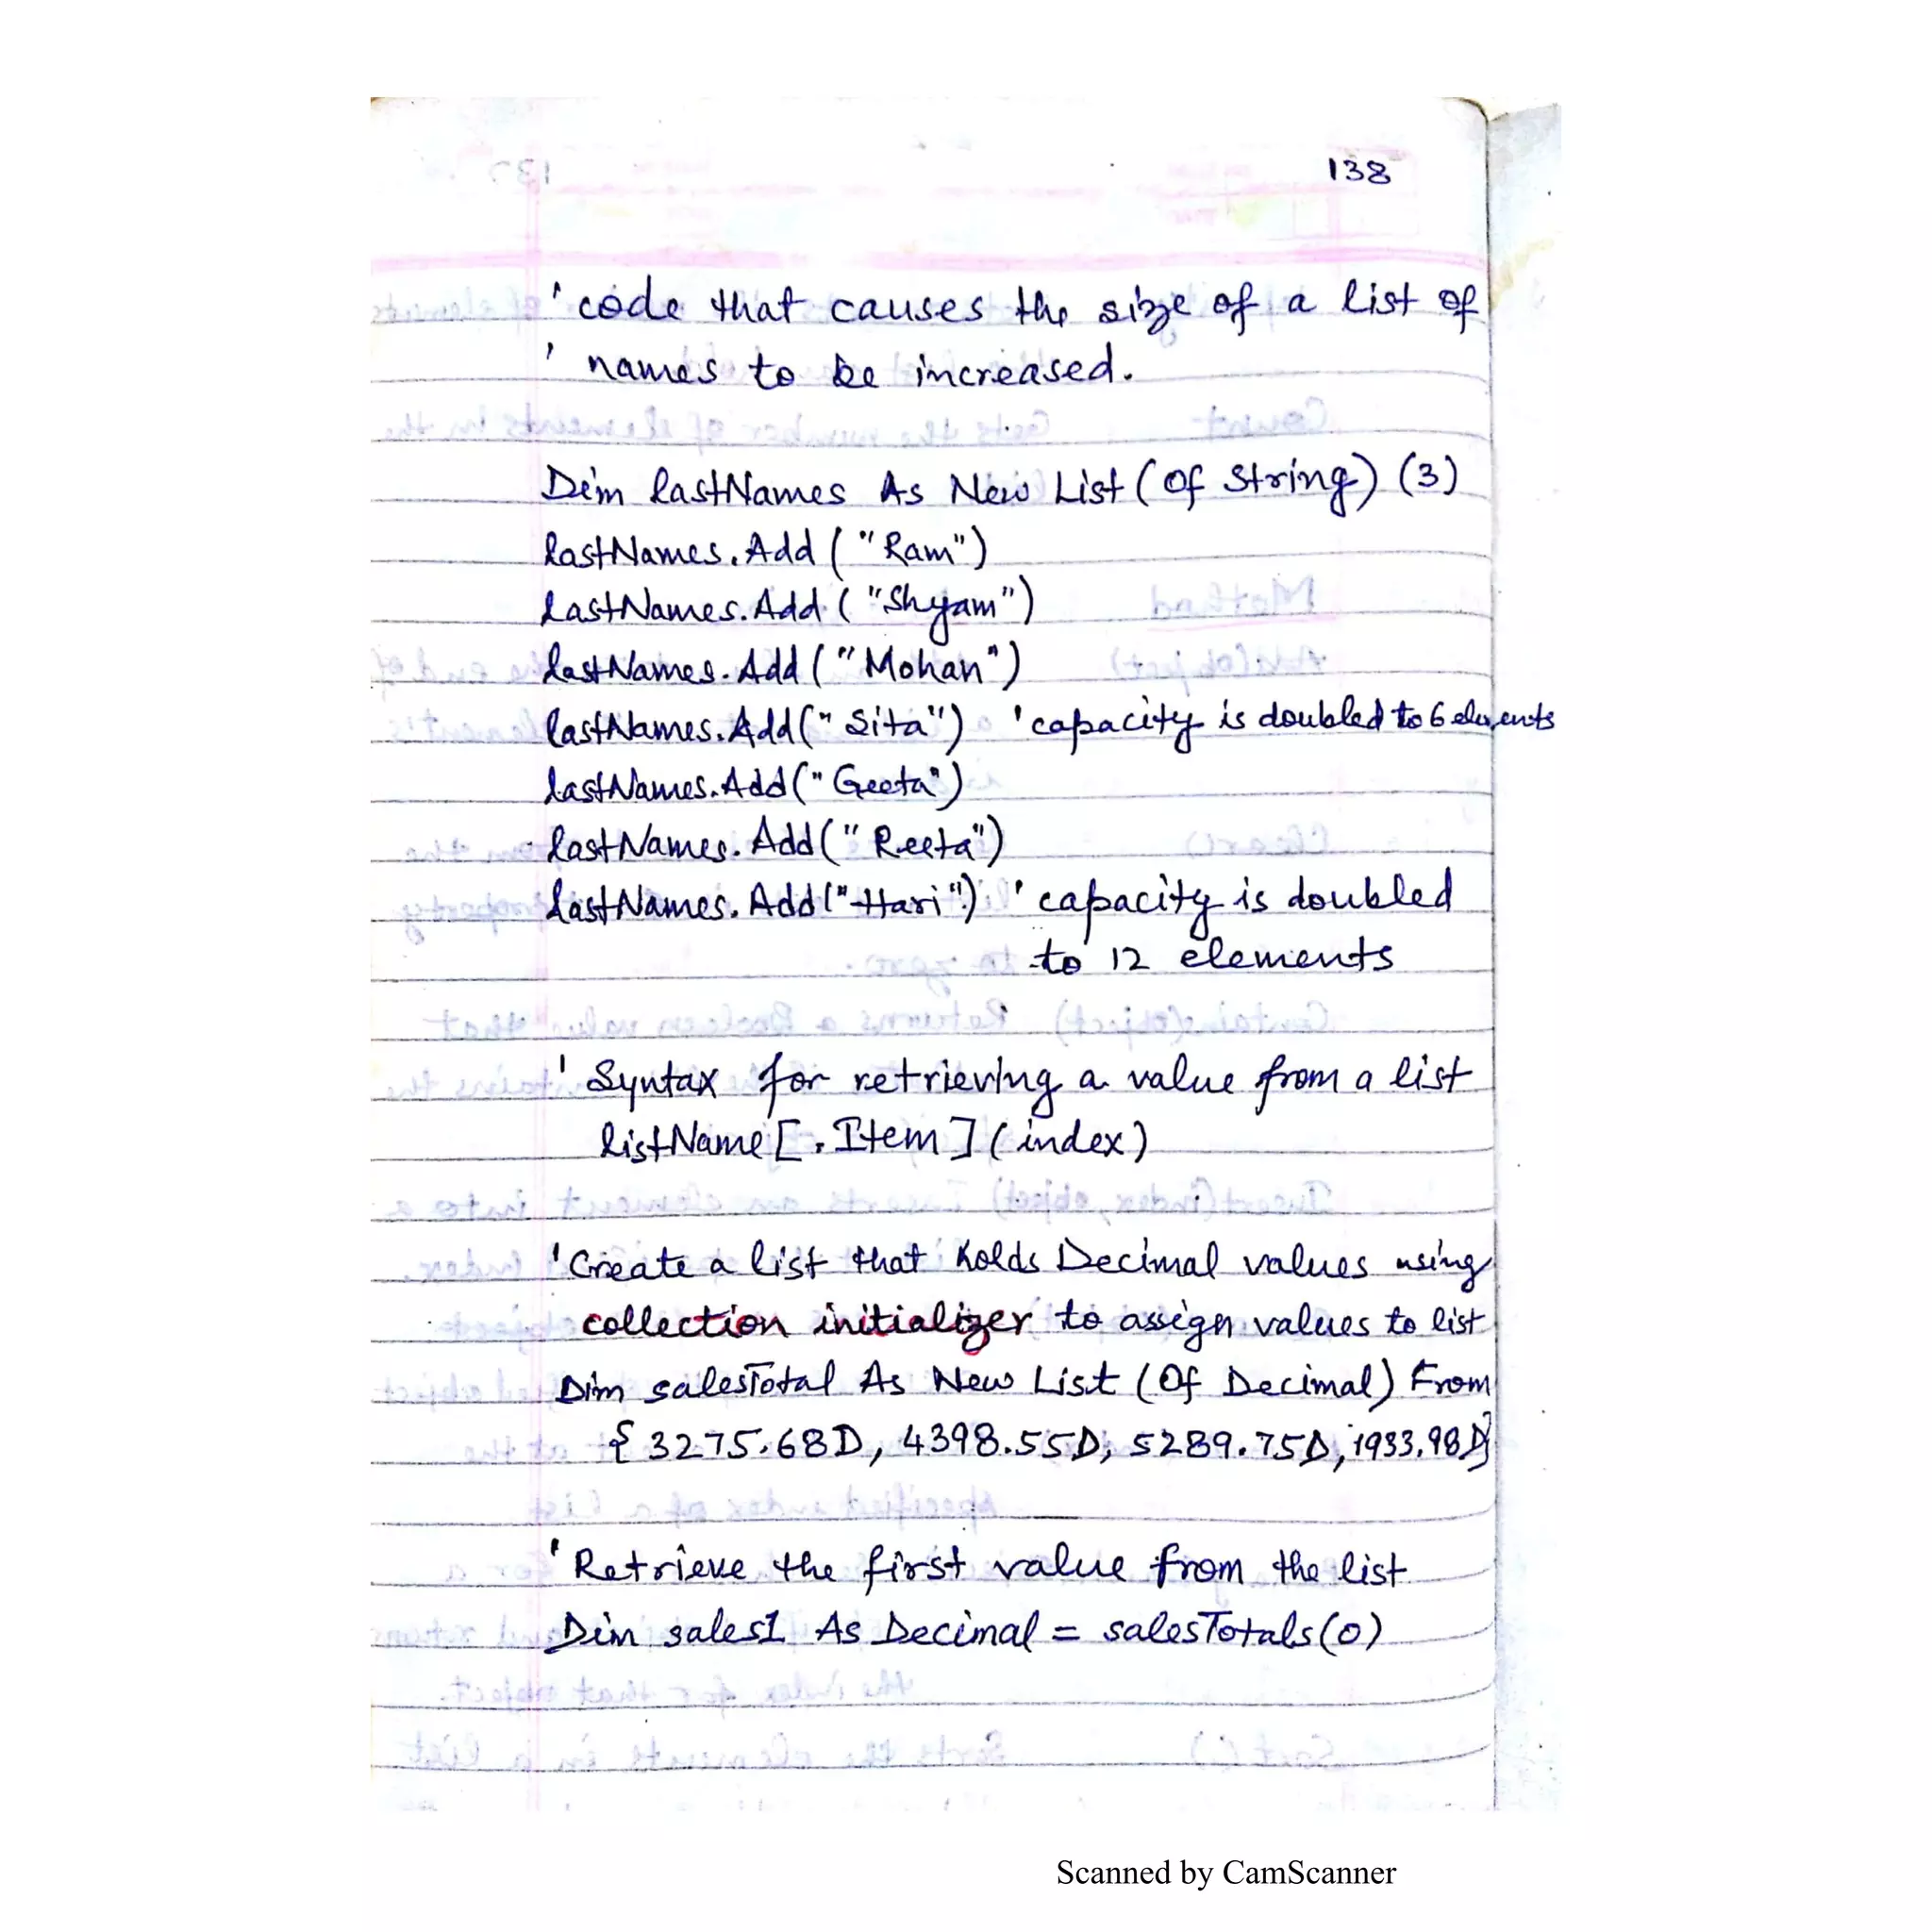 138
'code that causes the size of a list of
' names to be increased.
Dim lastNames As New List (Of String) (3)
lastNames.Add ("Ram")
lastNames.Add ("Shyam")
lastNames.Add ("Mohan")
lastNames.Add("Sita") 'capacity is doubled to 6 elements
lastNames.Add("Geeta")
lastNames.Add("Reeta")
lastNames.Add("Hari") 'capacity is doubled
to 12 elements
' Syntax for retrieving a value from a list
listName [.Item] (index)
'Create a list that holds Decimal values using
collection initializer to assign values to list
Dim salesTotal As New List (Of Decimal) From
{ 3275.68D, 4398.55D, 5289.75D, 1933.98D}
'Retrieve the first value from the list
Dim sales1 As Decimal = salesTotals(0)
Scanned by CamScanner